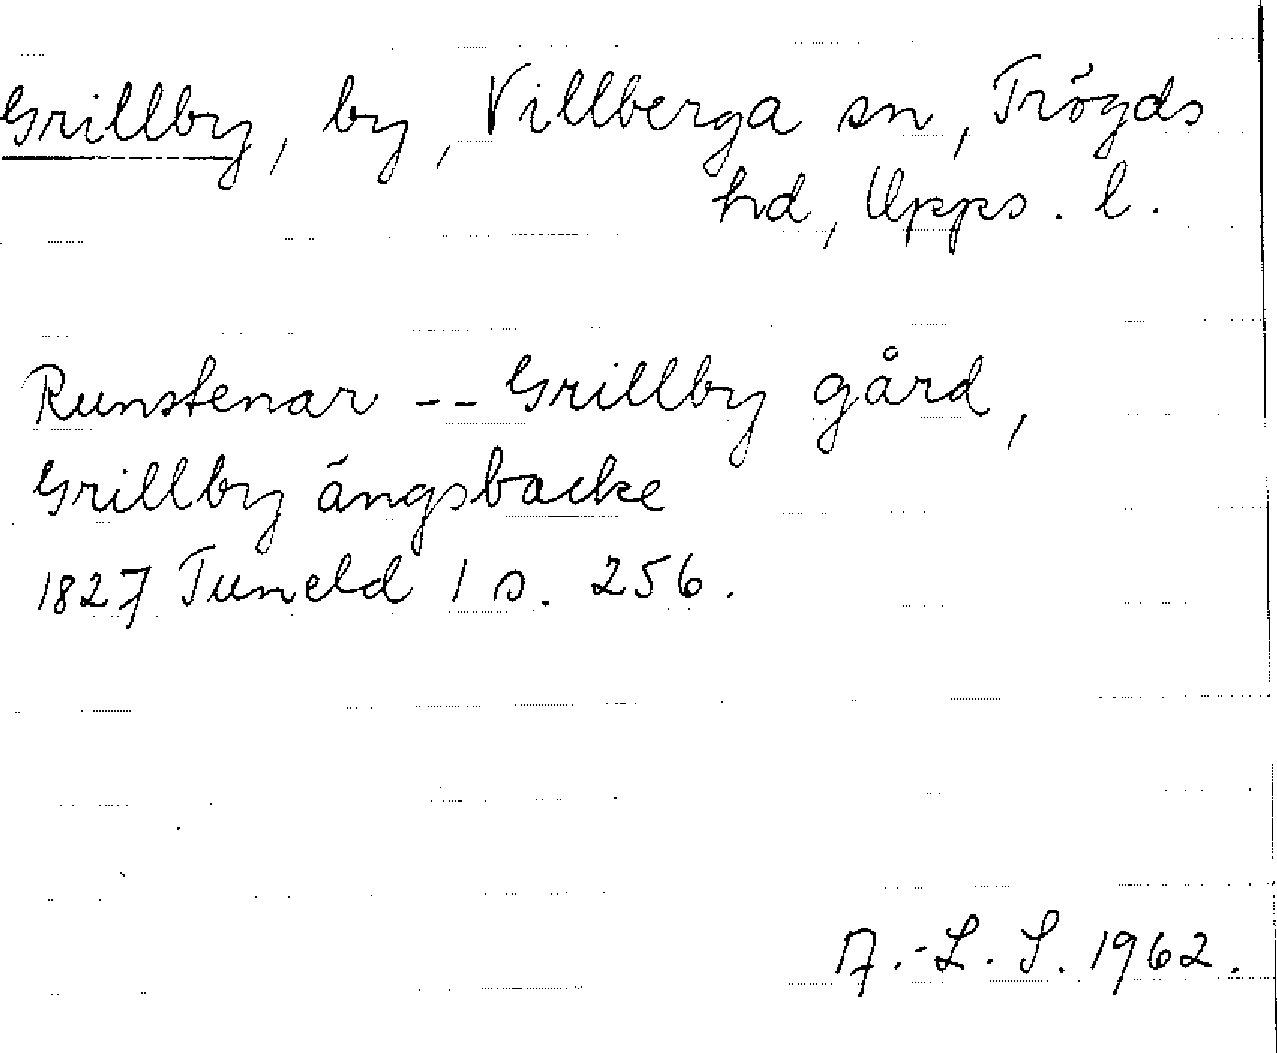 Grillby, by, Villberga sn, Trögds
hd, Upps. l.
Runstenar -- Grillby gård,
Grillby ängsbacke
1827 Tuneld 1 s. 256.
A.-L. S. 1962.